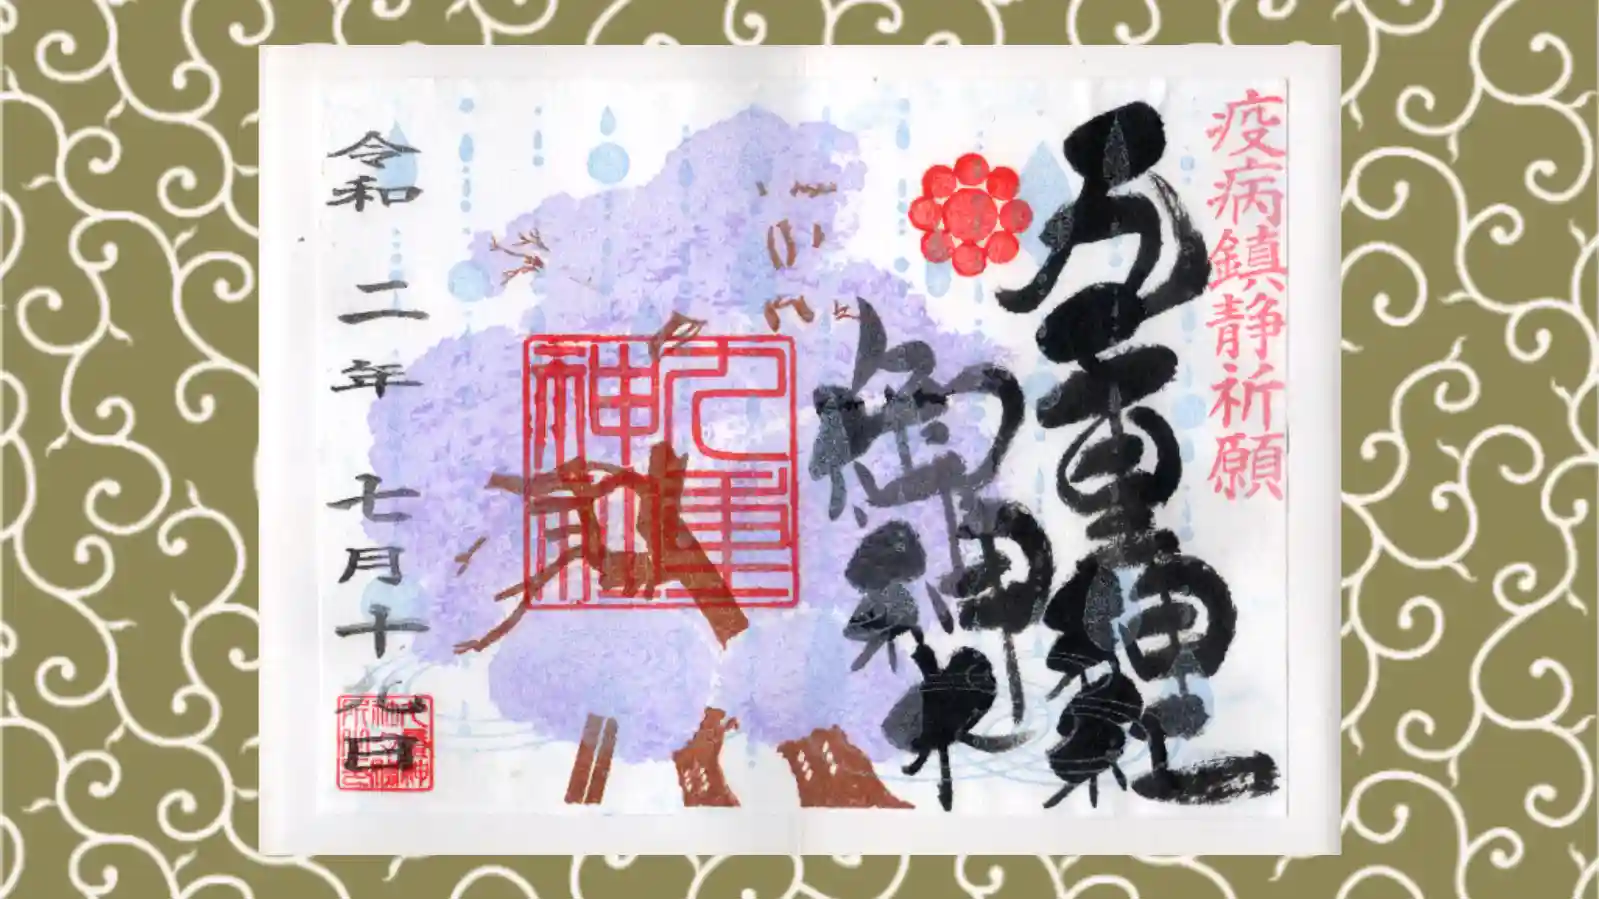 疫病鎮静祈願
九重神社
御神木
九重神社
令和二年七月十九日